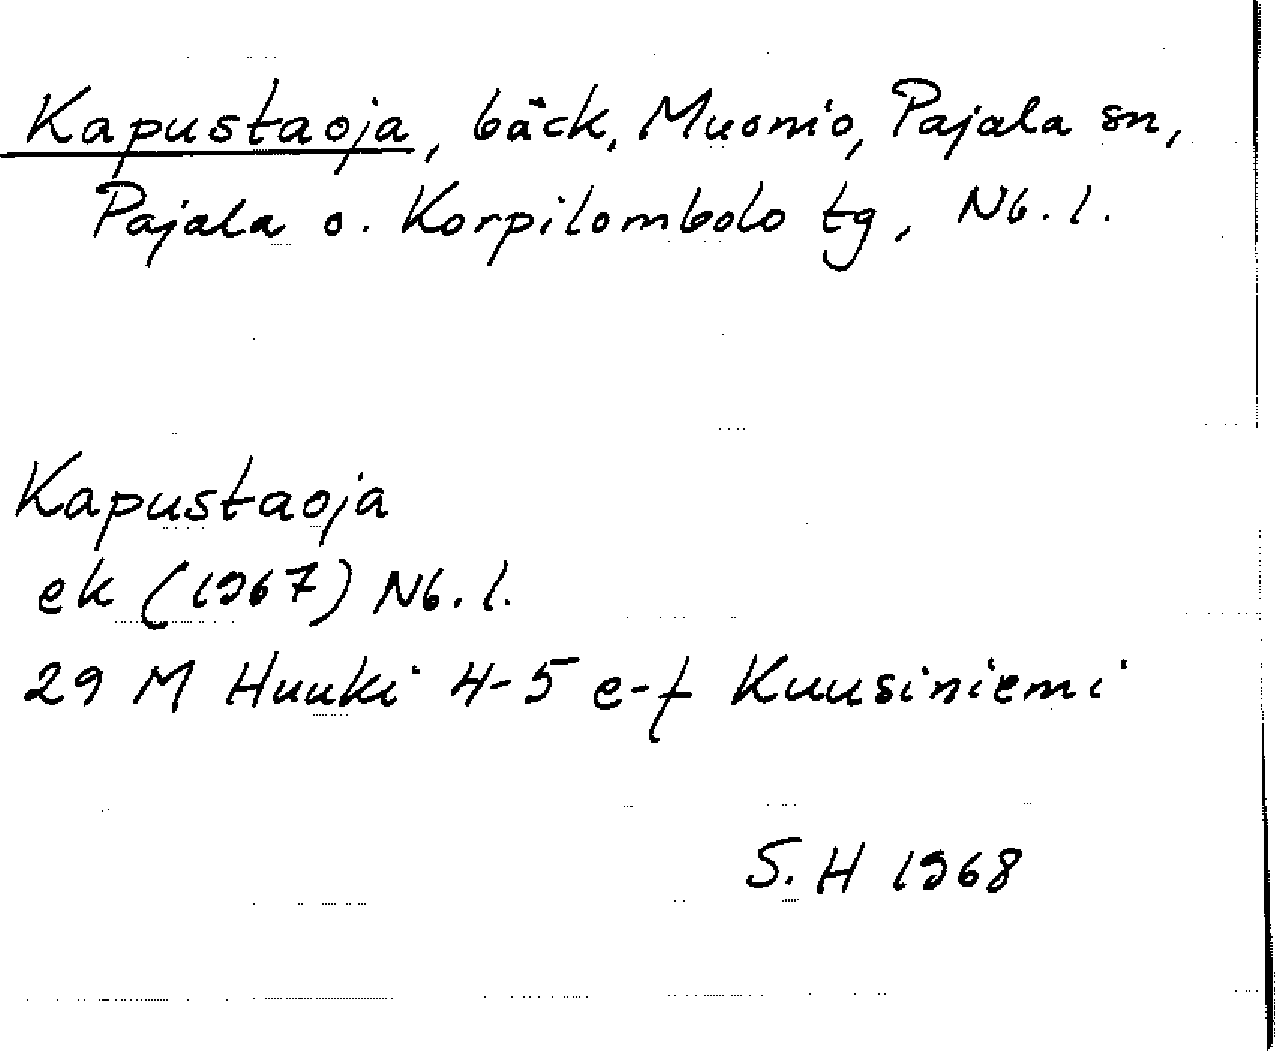 Kapustaoja, bäck, Muonio, Pajala sn,
Pajala o. Korpilombolo tg, Nb. l.
Kapustaoja
ek (1967) Nb. l.
29 M Huuki 4-5 e-f Kuusiniemi
S. H 1968